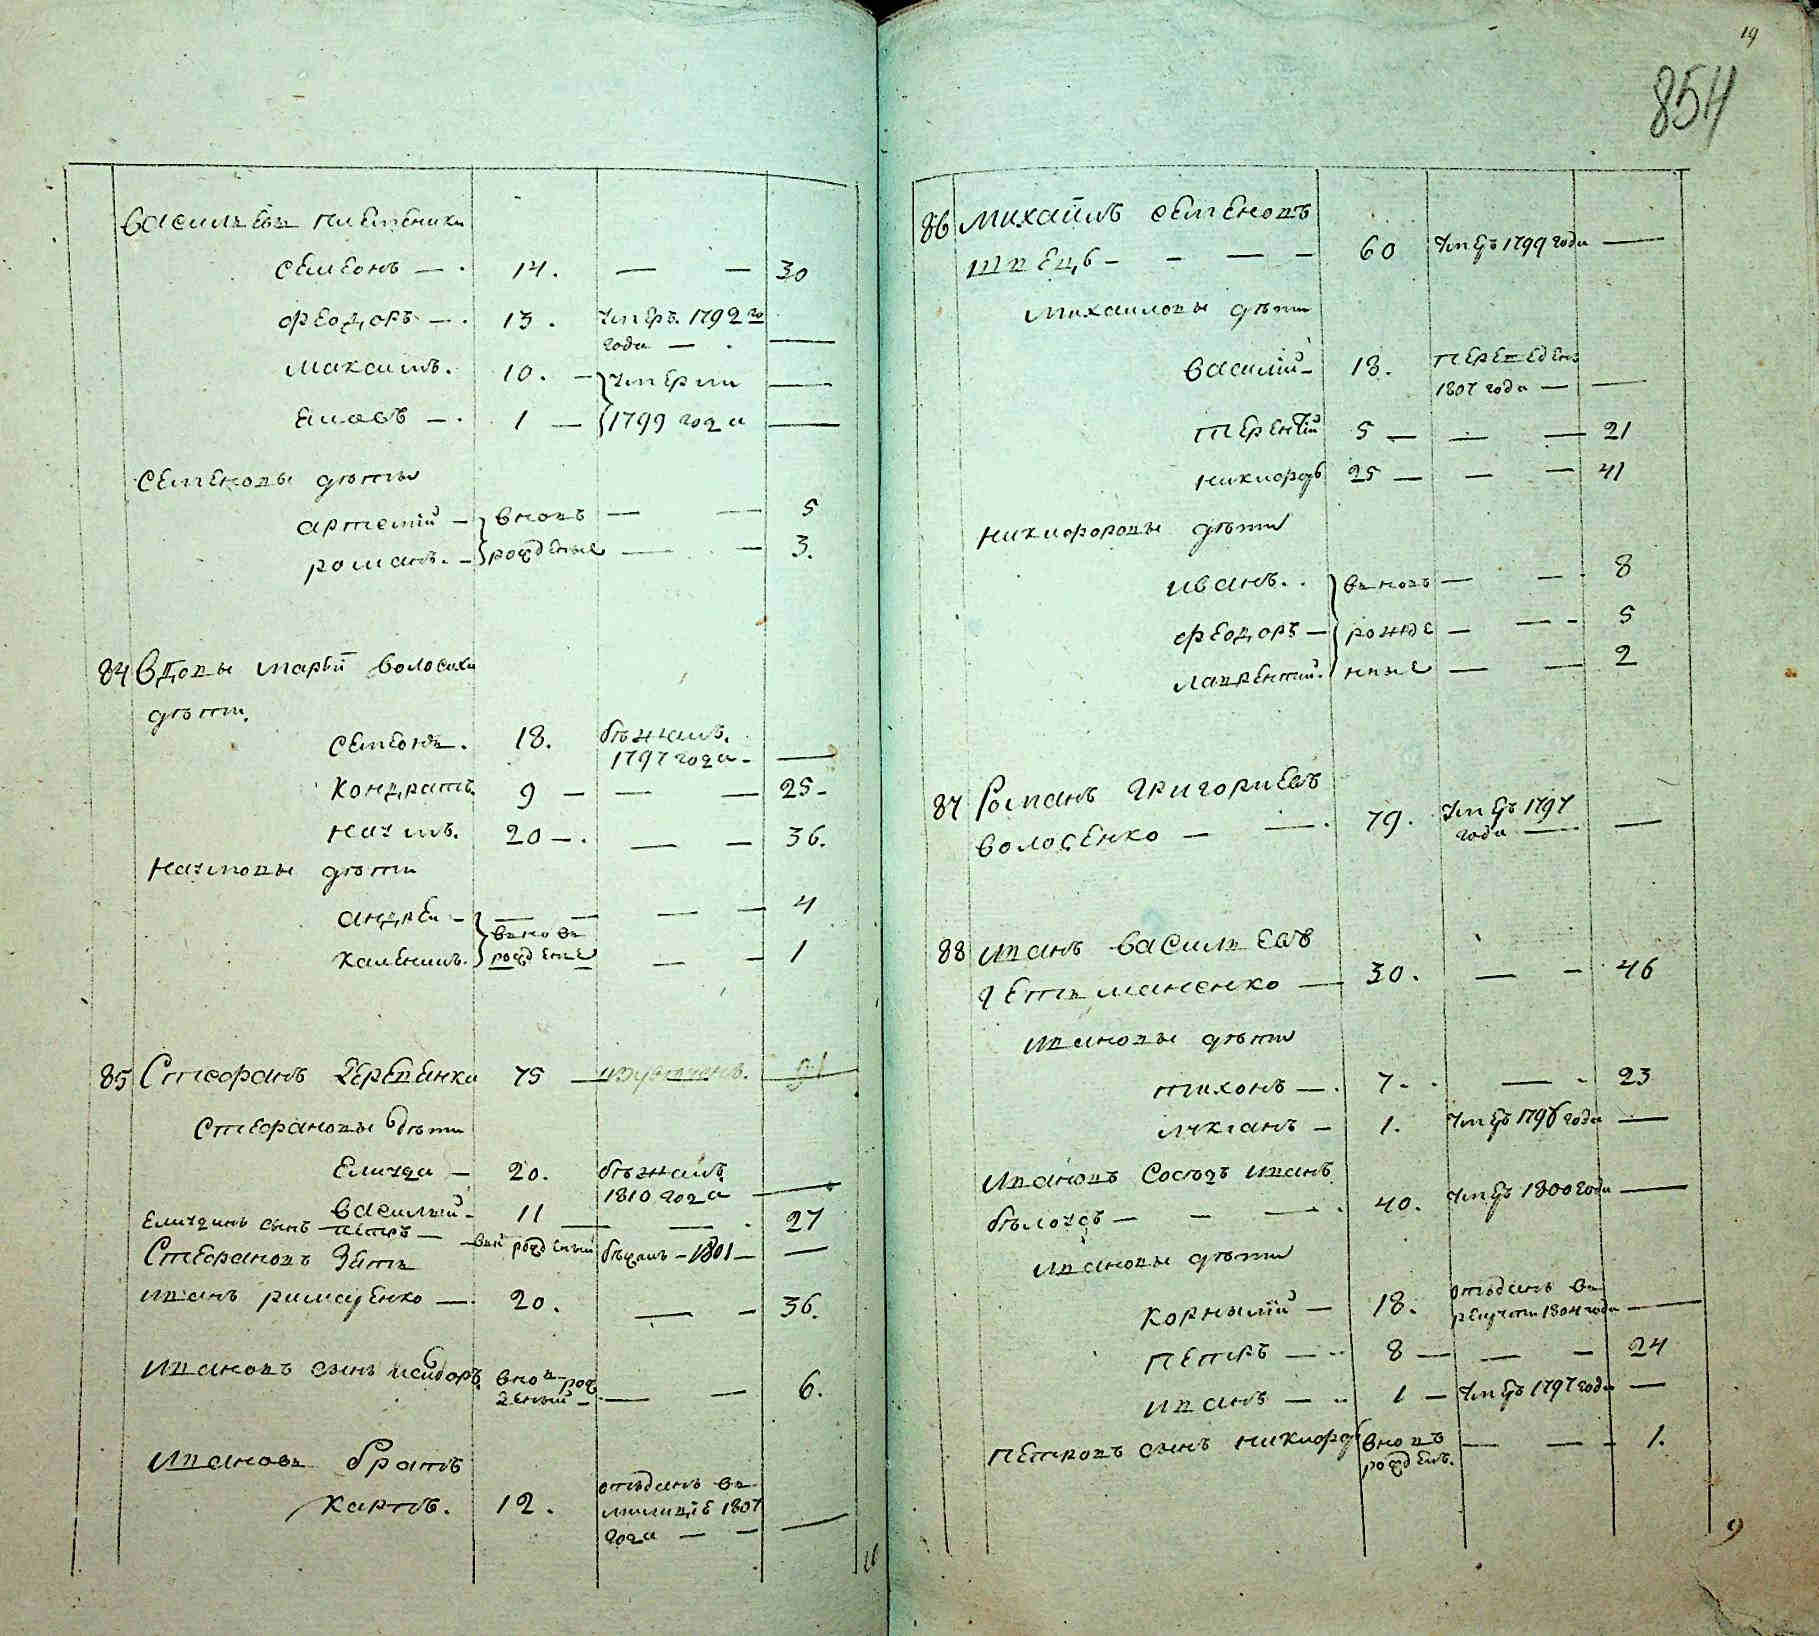 19
854
Васильевы племеники
Семеонъ — 14. — — 30
Феодоръ — 13. умеръ. 1792 го
года — —
Максимъ. 10. — умерли —
Еласъ — 1 — 1799 года —
Семеновы дѣти
Артемій — вновь — — 5
Романъ. — рожденые — — 3.
84 Вдовы Маріи Волосихи
дѣти.
Семеонъ. 18. бѣжалъ.
1797 года —
Кондратъ. 9 — — — 25 -
Наумъ. 20 — — — 36.
Наумовы дѣти
Андрей — — — — — 4
вновь
Каленикъ. рожденые — — 1
85 Стефанъ Черевенко 75 — — —
Стефановы дѣти
Елисей — 20. бѣжалъ
1810 года —
Василий — 11 — — 27
Елисеинъ сынъ Петръ — внов рожденый бѣжалъ — 1801 — —
Стефановъ Зять
Иванъ Римаренко — 20. — — 36.
Ивановъ сынъ Исидоръ вновь рож
деный — — — 6.
Ивановъ братъ
Карпъ. 12. отъданъ въ
милицію 1807
года — — —
86 Михайлъ Семеновъ
Швецъ — — — — 60 умеръ 1799 года —
Михаиловы дѣти
Василій — 18. переведенъ
1807 года — —
Терентій 5 — — — 21
Никифоръ 25 — — — 41
Никифоровы дѣти
Иванъ. вновь — — 8
Феодоръ — рожде — — 5
Лаврентий. нные — — 2
87 Романъ Григориевъ
Волосенко — — 79. умеръ 1797
года — —
88 Иванъ Васильевъ
Гетьманенко — 30. — — 46
Ивановы дѣти
Тихонъ — 7. — — 23
Лукіанъ — 1. умеръ 1796 года —
Ивановъ сосѣдъ Иванъ
Бѣлоусъ — — — 40. умеръ 1800 года —
Ивановы дѣти
Корнылій — 18. отъданъ въ
рекруты 1804 года —
Петръ — 8 — — — 24
Иванъ — 1 — умеръ 1797 года —
Петровъ сынъ Никифоръ вновь — — 1.
рожденъ.
9